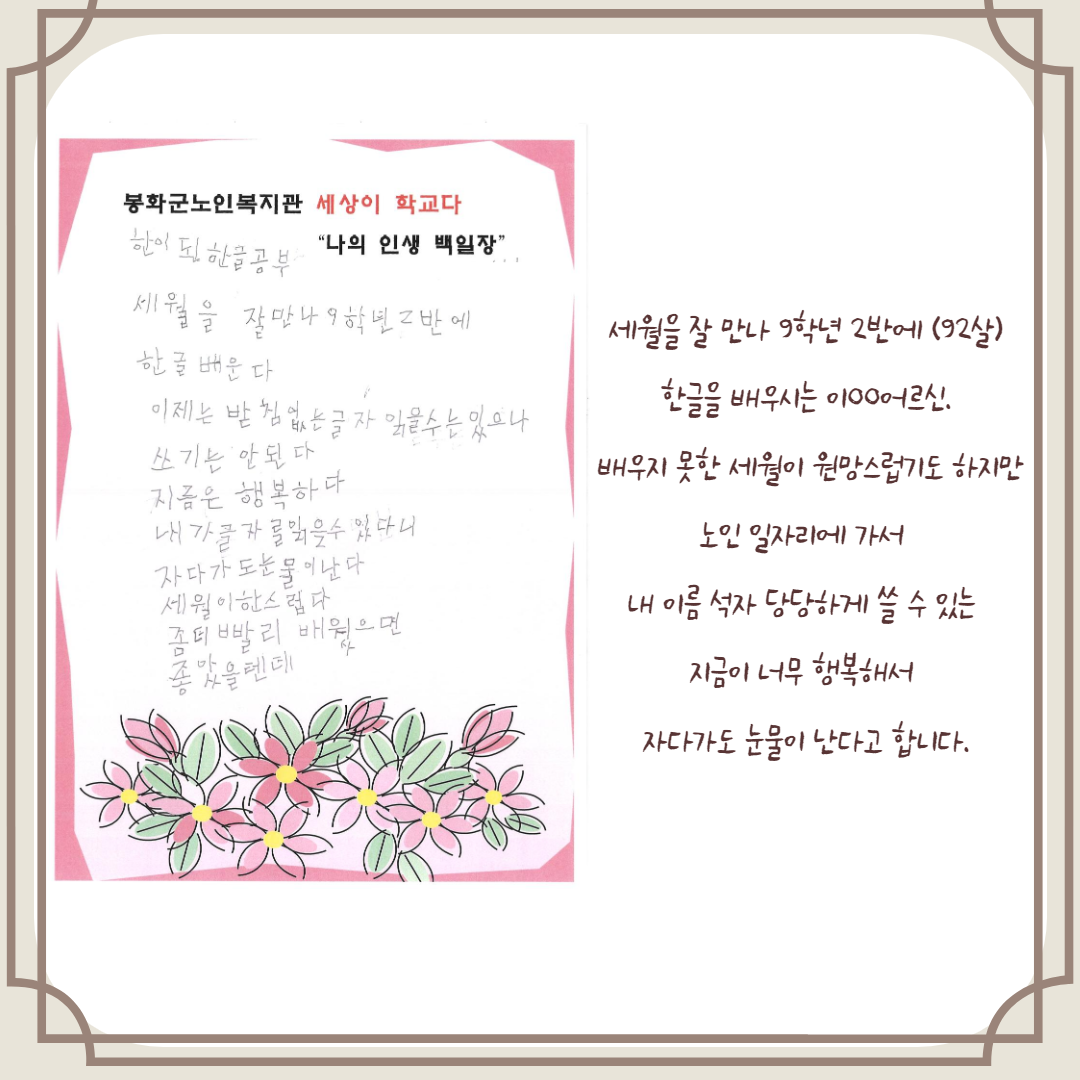 봉화군노인복지관 세상이 학교다
“나의 인생 백일장”
한이 된 한글공부
세월을 잘만나 9학년 2반에
한글배운다
이제는 받침없는글자 읽을수는있으나
쓰기는 안된다
지금은 행복하다
내가글자를읽을수있다니
자다가도눈물이난다
세월이한스럽다
좀더 빨리 배웠으면
좋았을텐데
세월을 잘 만나 9학년 2반에 (92살)
한글을 배우시는 이00어르신.
배우지 못한 세월이 원망스럽기도 하지만
노인 일자리에 가서
내 이름 석자 당당하게 쓸 수 있는
지금이 너무 행복해서
자다가도 눈물이 난다고 합니다.